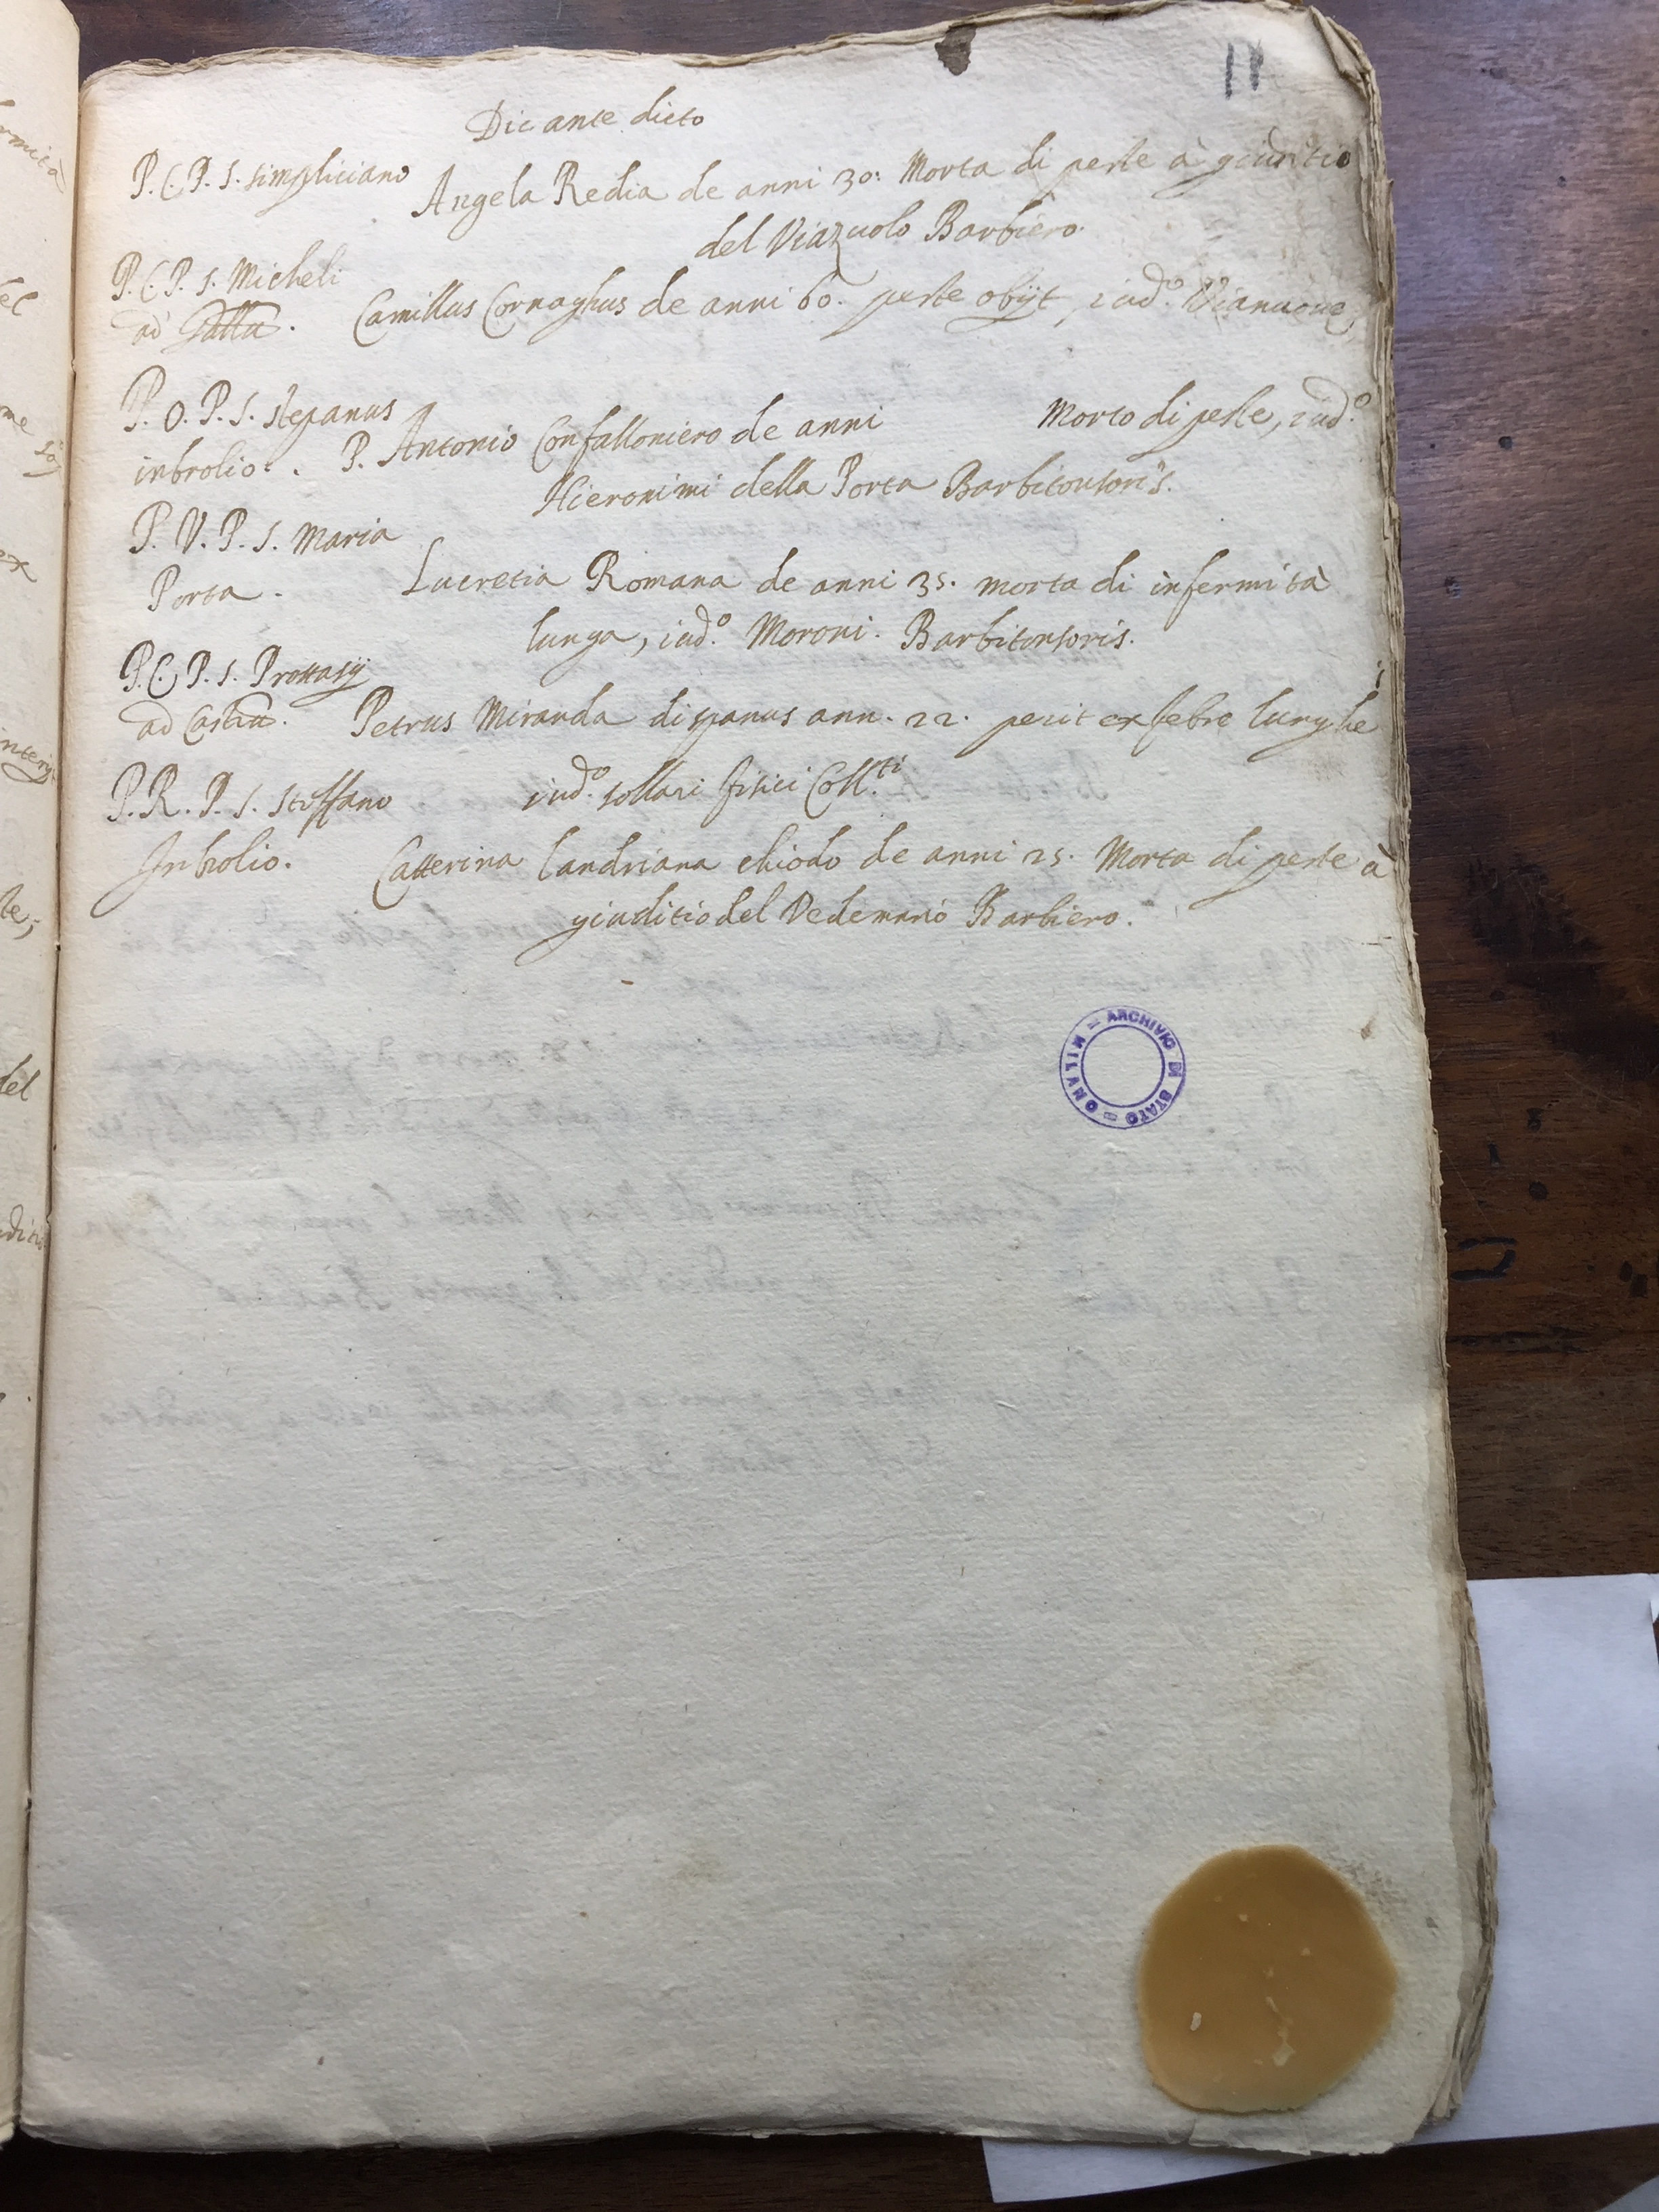 11
Die ante dicto
P. C. P. S. Simpliciano
Angela Redia de anni 30. Morta di peste à giuditio
del Viazuolo Barbiero.
P. C. P. S. Micheli
ad Gallũ. Camillus Cornaghus de anni 60. peste obijt, iud.º Vianuove,
P. O. P. S. Stepanus
inbrolio. P. Antonio Confalloniero de anni Morto di peste, iud.º
Hieronimi della Porta Barbitonsoris.
P. V. P. S. Maria
Porta. Lucretia Romana de anni 35. morta di infermità
lunga, iud.º Moroni. Barbitonsoris.
P. C. P. S. Prottasij
ad Castrũ. Petrus Miranda dispanus ann. 22. perit ex febre lunghe
P. R. P. S. Steffano iud.º sollari fisici Coll.ti
Inbrolio. Catterina landriana chiodo de anni 25. Morta di peste à
giuditio del Vedemano Barbiero.
ARCHIVIO DI STATO = MILANO =